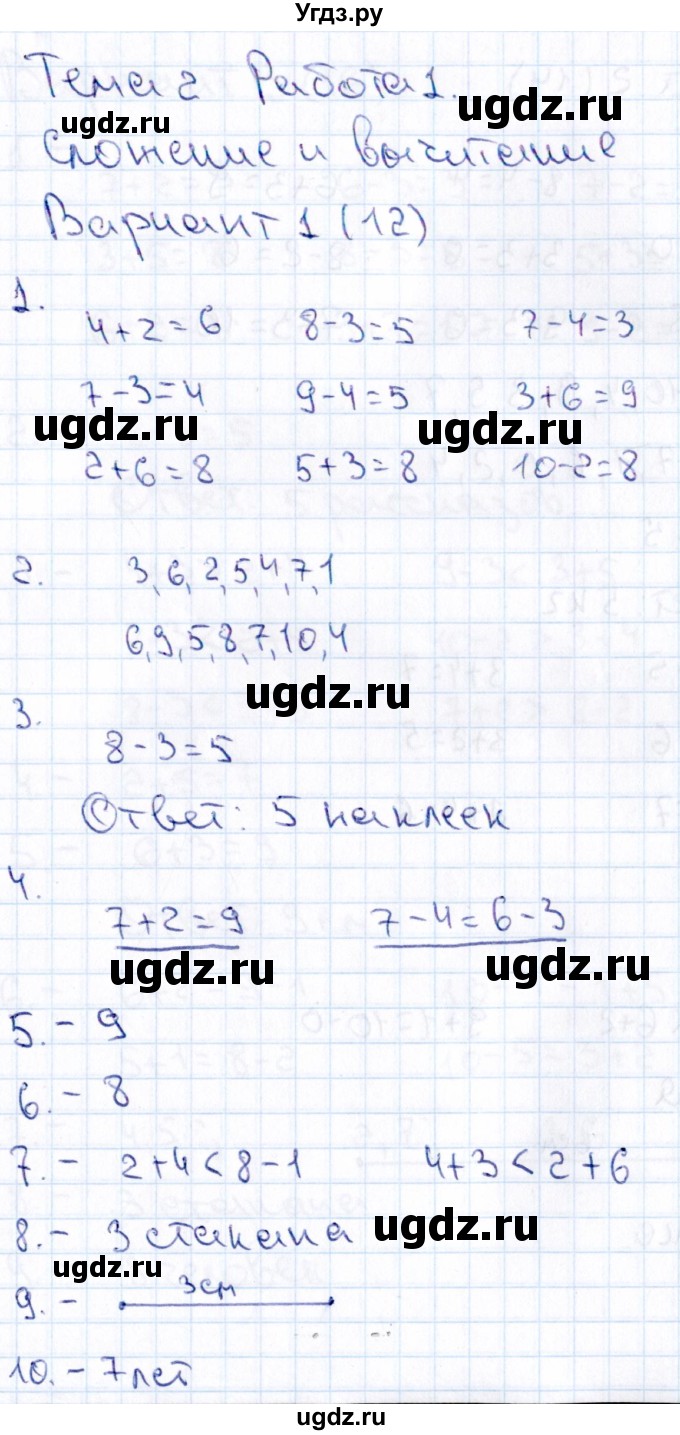 Угдз.ру
Тема 2 Работа 1.
ugdz.ru ugdz.ru
Сложение и вычитание
Вариант 1 (12)
1.
4+2=6 8-3=5 7-4=3
7-3=4 9-4=5 3+6=9
ugdz.ru ugdz.ru
2+6=8 5+3=8 10-2=8
2. 3, 6, 2, 5, 4, 7, 1
6, 9, 5, 8, 7, 10, 4
ugdz.ru
3.
8-3=5
Ответ: 5 наклеек
4.
7+2=9 7-4=6-3
ugdz.ru ugdz.ru
5. - 9
6. - 8
7. - 2+4<8-1 4+3<2+6
8. - 3 стакана ugdz.ru
ugdz.ru
9. - 3см
10. - 7 лет
ugdz.ru